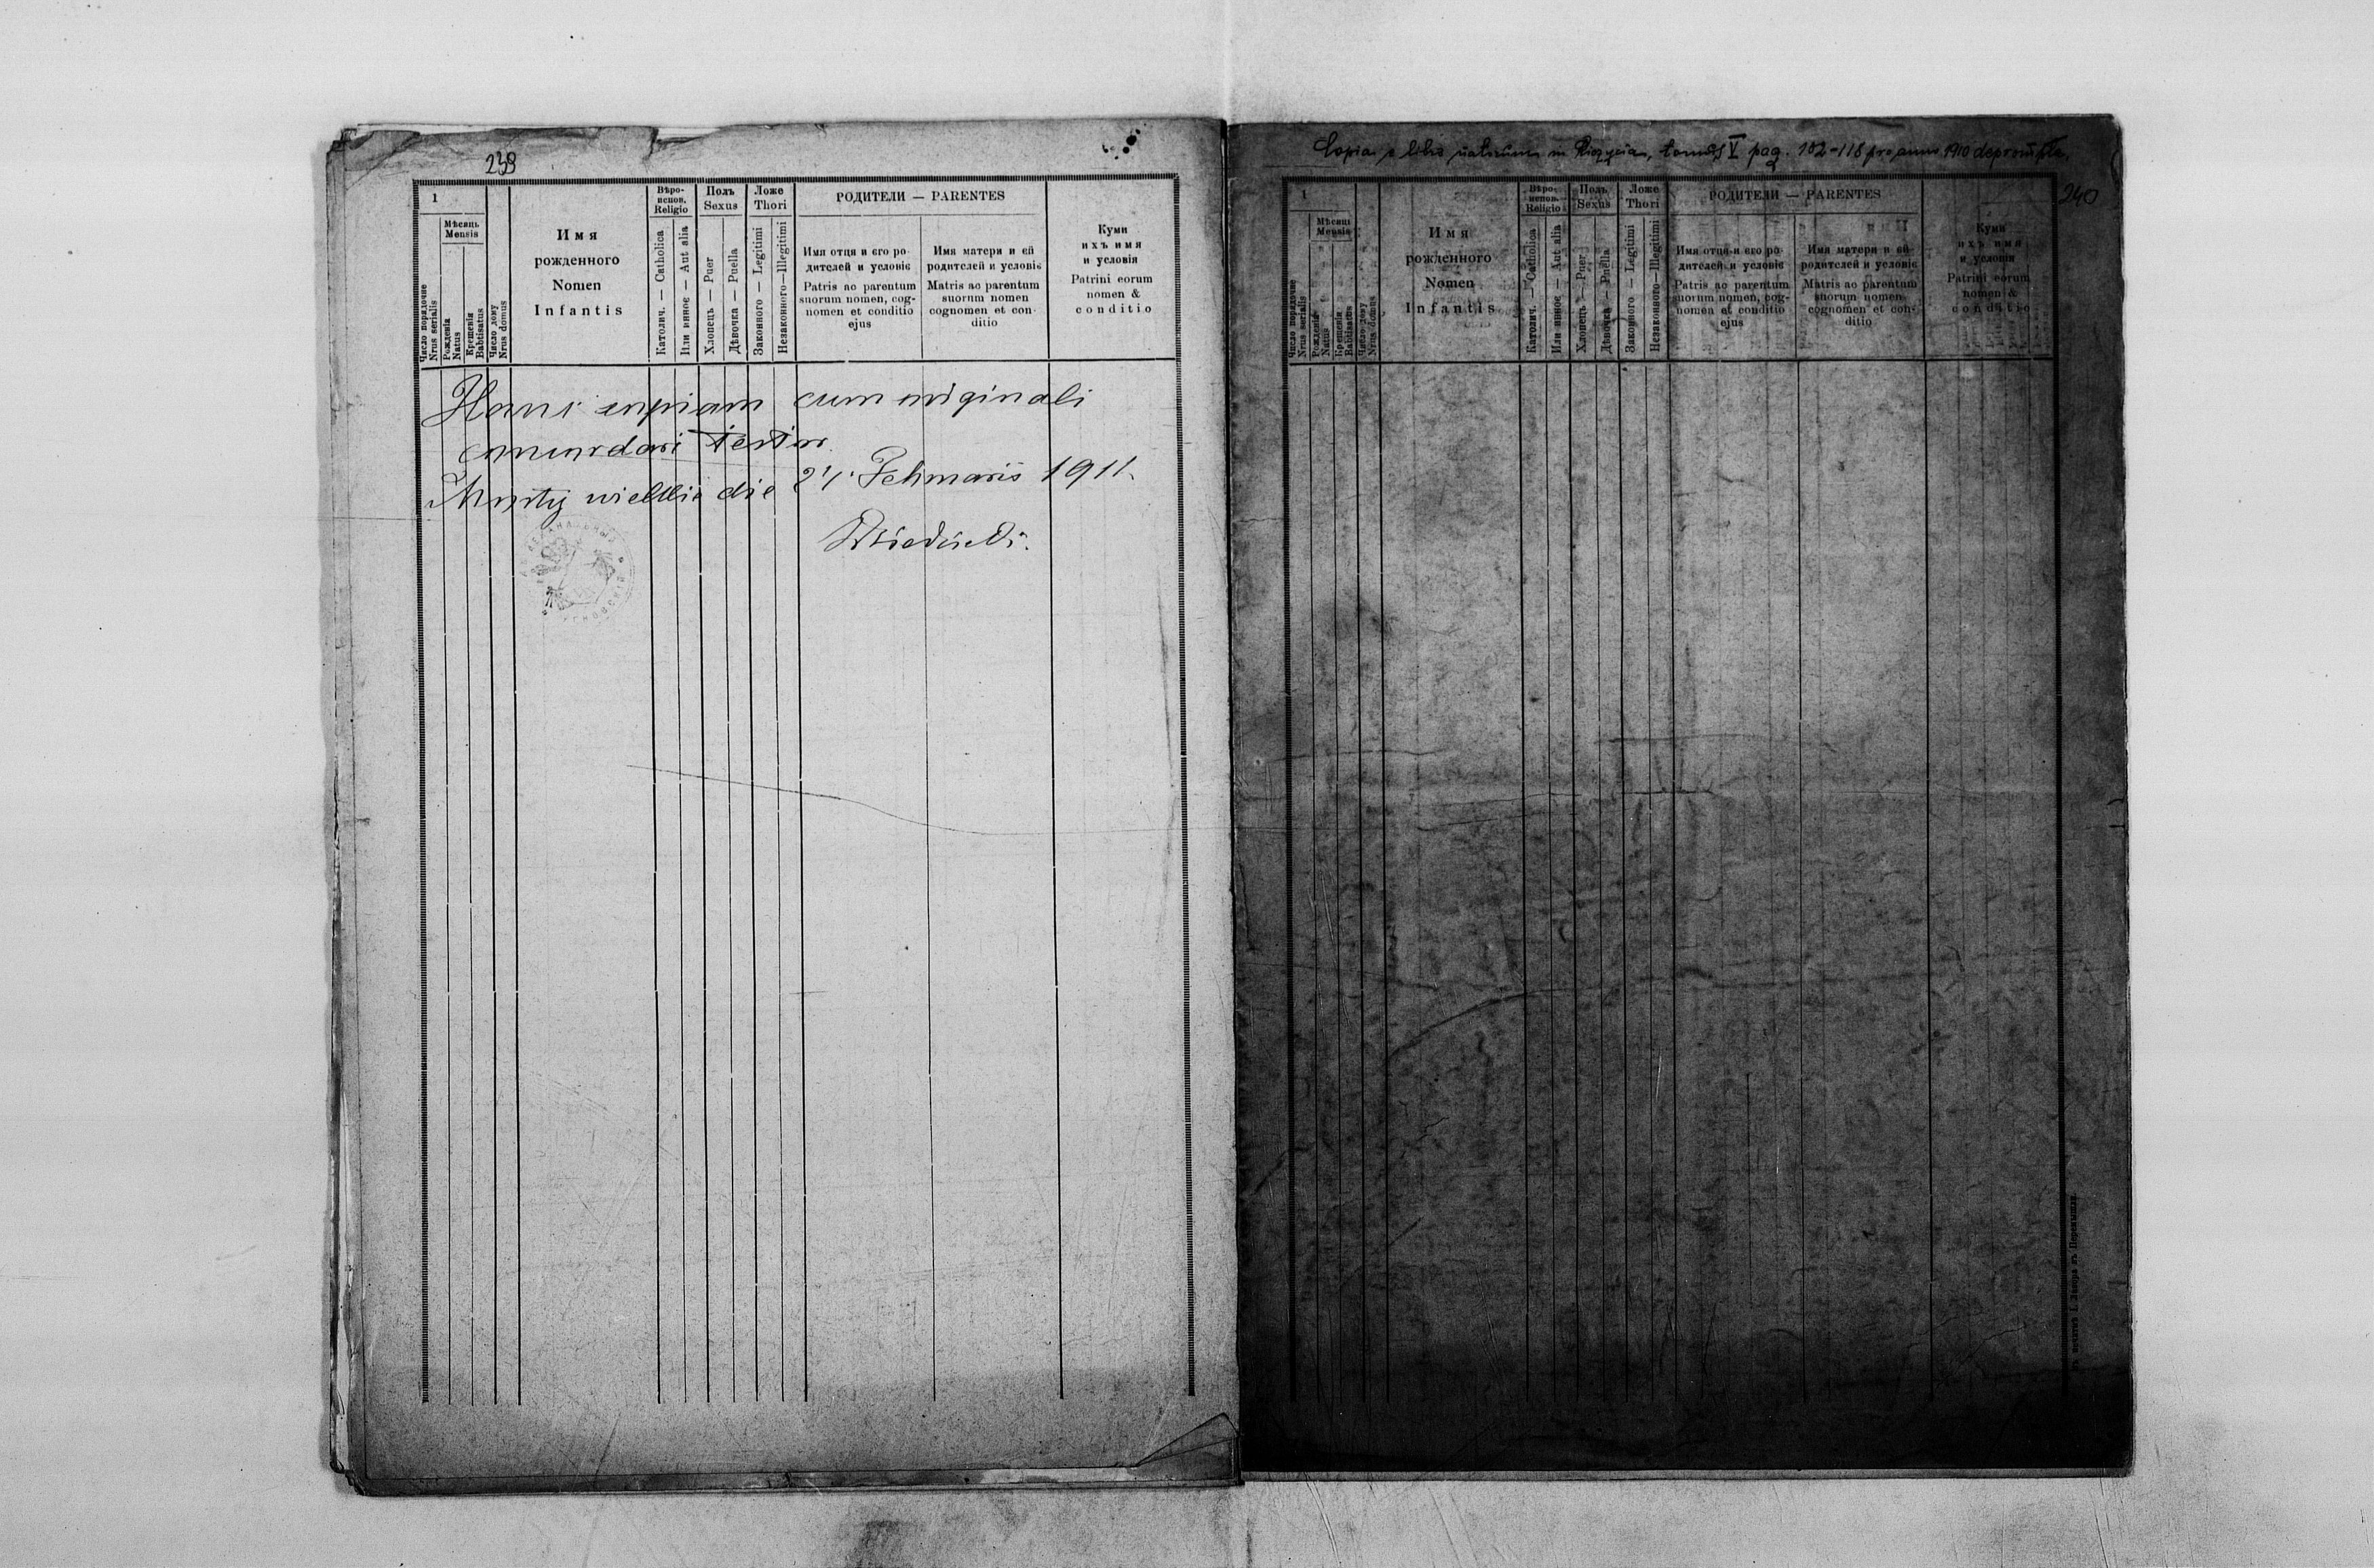 239
1
Мѣсяць
Mensis
Число порядочне
Nrus serialis
Рожденія
Natus
Крещенія
Babtisatus
Число дому
Nrus domus
Имя
рожденного
Nomen
Infantis
Вѣро-
испов.
Religio
Католич. — Catholica
Или инноє — Aut alia
Полъ
Sexus
Хлопець — Puer
Дѣвочка — Puella
Ложе
Thori
Законного — Legitimi
Незаконного — Illegitimi
РОДИТЕЛИ — PARENTES
Имя отця и єго ро-
дителей и условіє
Patris ac parentum
suorum nomen, cog-
nomen et conditio
ejus
Имя матери и єй
родителей и условіє
Matris ac parentum
suorum nomen
cognomen et con-
ditio
Куми
ихъ имя
и условія
Patrini eorum
nomen &
conditio
Hanc copiam cum originali
concordari testor.
die 24. Februarii 1911.
Copia e libro natorum in, tomus V pag. 102-118 pro anno 1910 deprompta.
240
1
Мѣсяць
Mensis
Число порядочне
Nrus serialis
Рожденія
Natus
Крещенія
Babtisatus
Число дому
Nrus domus
Имя
рожденного
Nomen
Infantis
Вѣро-
испов.
Religio
Католич. — Catholica
Или инноє — Aut alia
Полъ
Sexus
Хлопець — Puer
Дѣвочка — Puella
Ложе
Thori
Законного — Legitimi
Незаконного — Illegitimi
РОДИТЕЛИ — PARENTES
Имя отця и єго ро-
дителей и условіє
Patris ac parentum
suorum nomen, cog-
nomen et conditio
ejus
Имя матери и єй
родителей и условіє
Matris ac parentum
suorum nomen
cognomen et con-
ditio
Куми
ихъ имя
и условія
Patrini eorum
nomen &
conditio